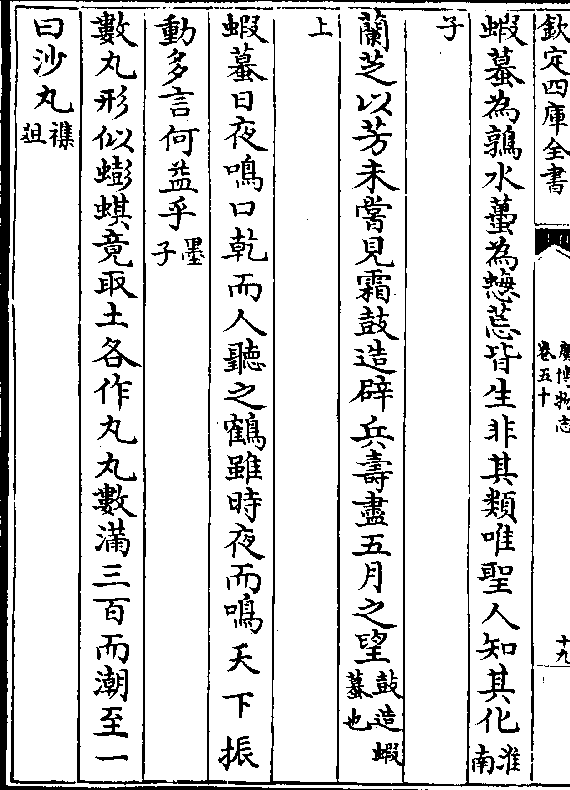 欽定四庫全書
廣博物志
卷五十
十九
蝦蟇為鶉水蠆為蟌莣皆生非其類唯聖人知其化淮南
子
蘭芝以芳未嘗見霜鼓造辟兵壽盡五月之望鼓造蝦蟇也
上
蝦蟇日夜鳴口乾而人聽之鶴雖時夜而鳴天下振
動多言何益乎墨子
數丸形似蟛蜞竟取土各作丸丸數滿三百而潮至一
曰沙丸襍俎